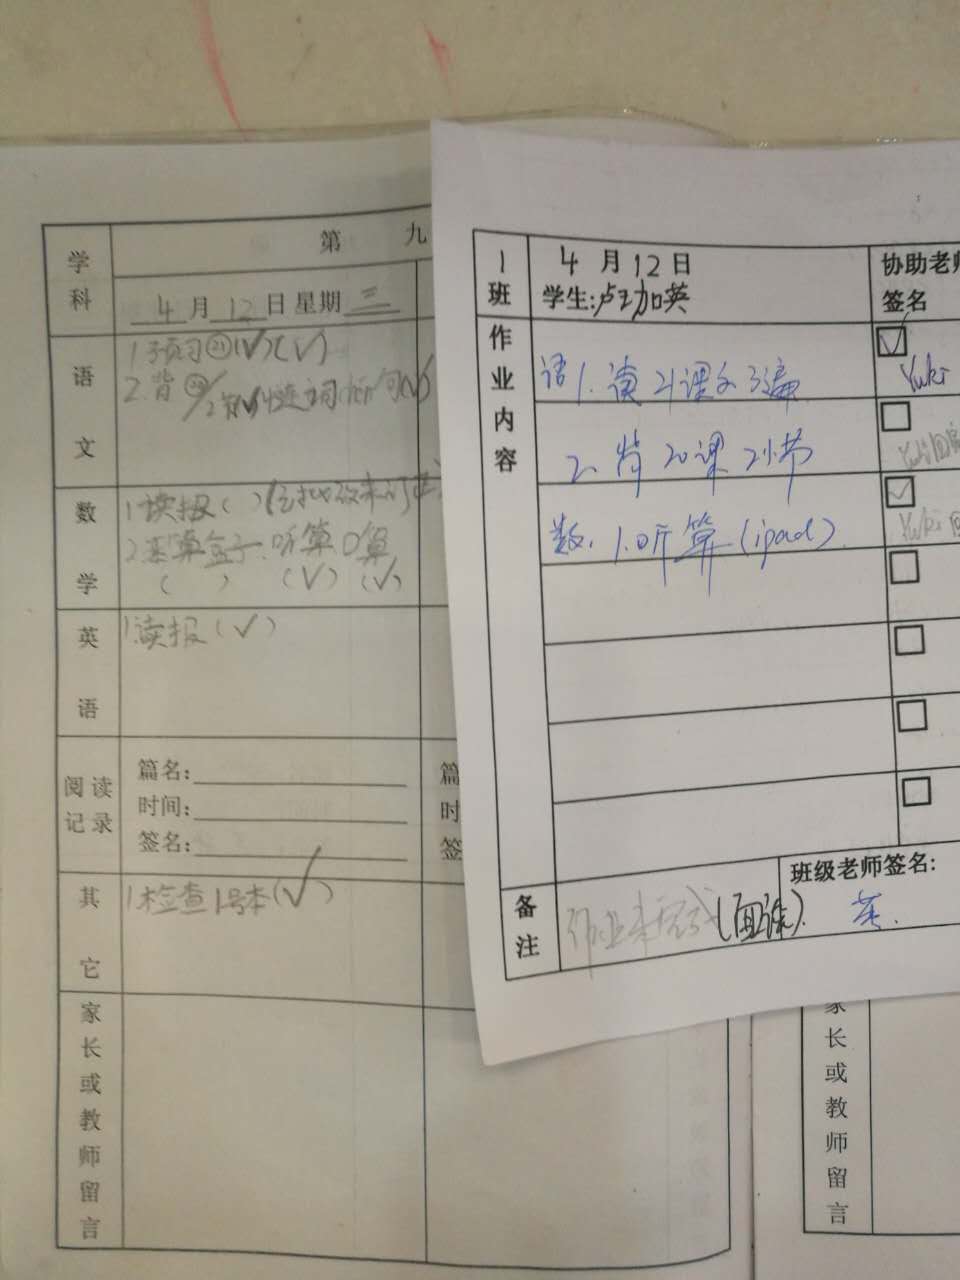 学科
第 九
4月12日 星期三
语文
1.预习㉑(✓)(✓)
2.背⑳/2
数学
1.读报( )
听算 口算
( ) (✓) (✓)
英语
1.读报(✓)
阅读记录
篇名:
时间:
签名:
篇
时
签
其它
1.检查1号本(✓)
家长或教师留言
1班
4月12日
学生:卢加英
协助老师
签名
作业内容
语 1. 读21课文3遍
Yuki
2. 背20课2小节
Yuki回家
数. 1.听算(ipad).
Yuki回
备注
作业未完成(回读).
班级老师签名:
英.
家长或教师留言